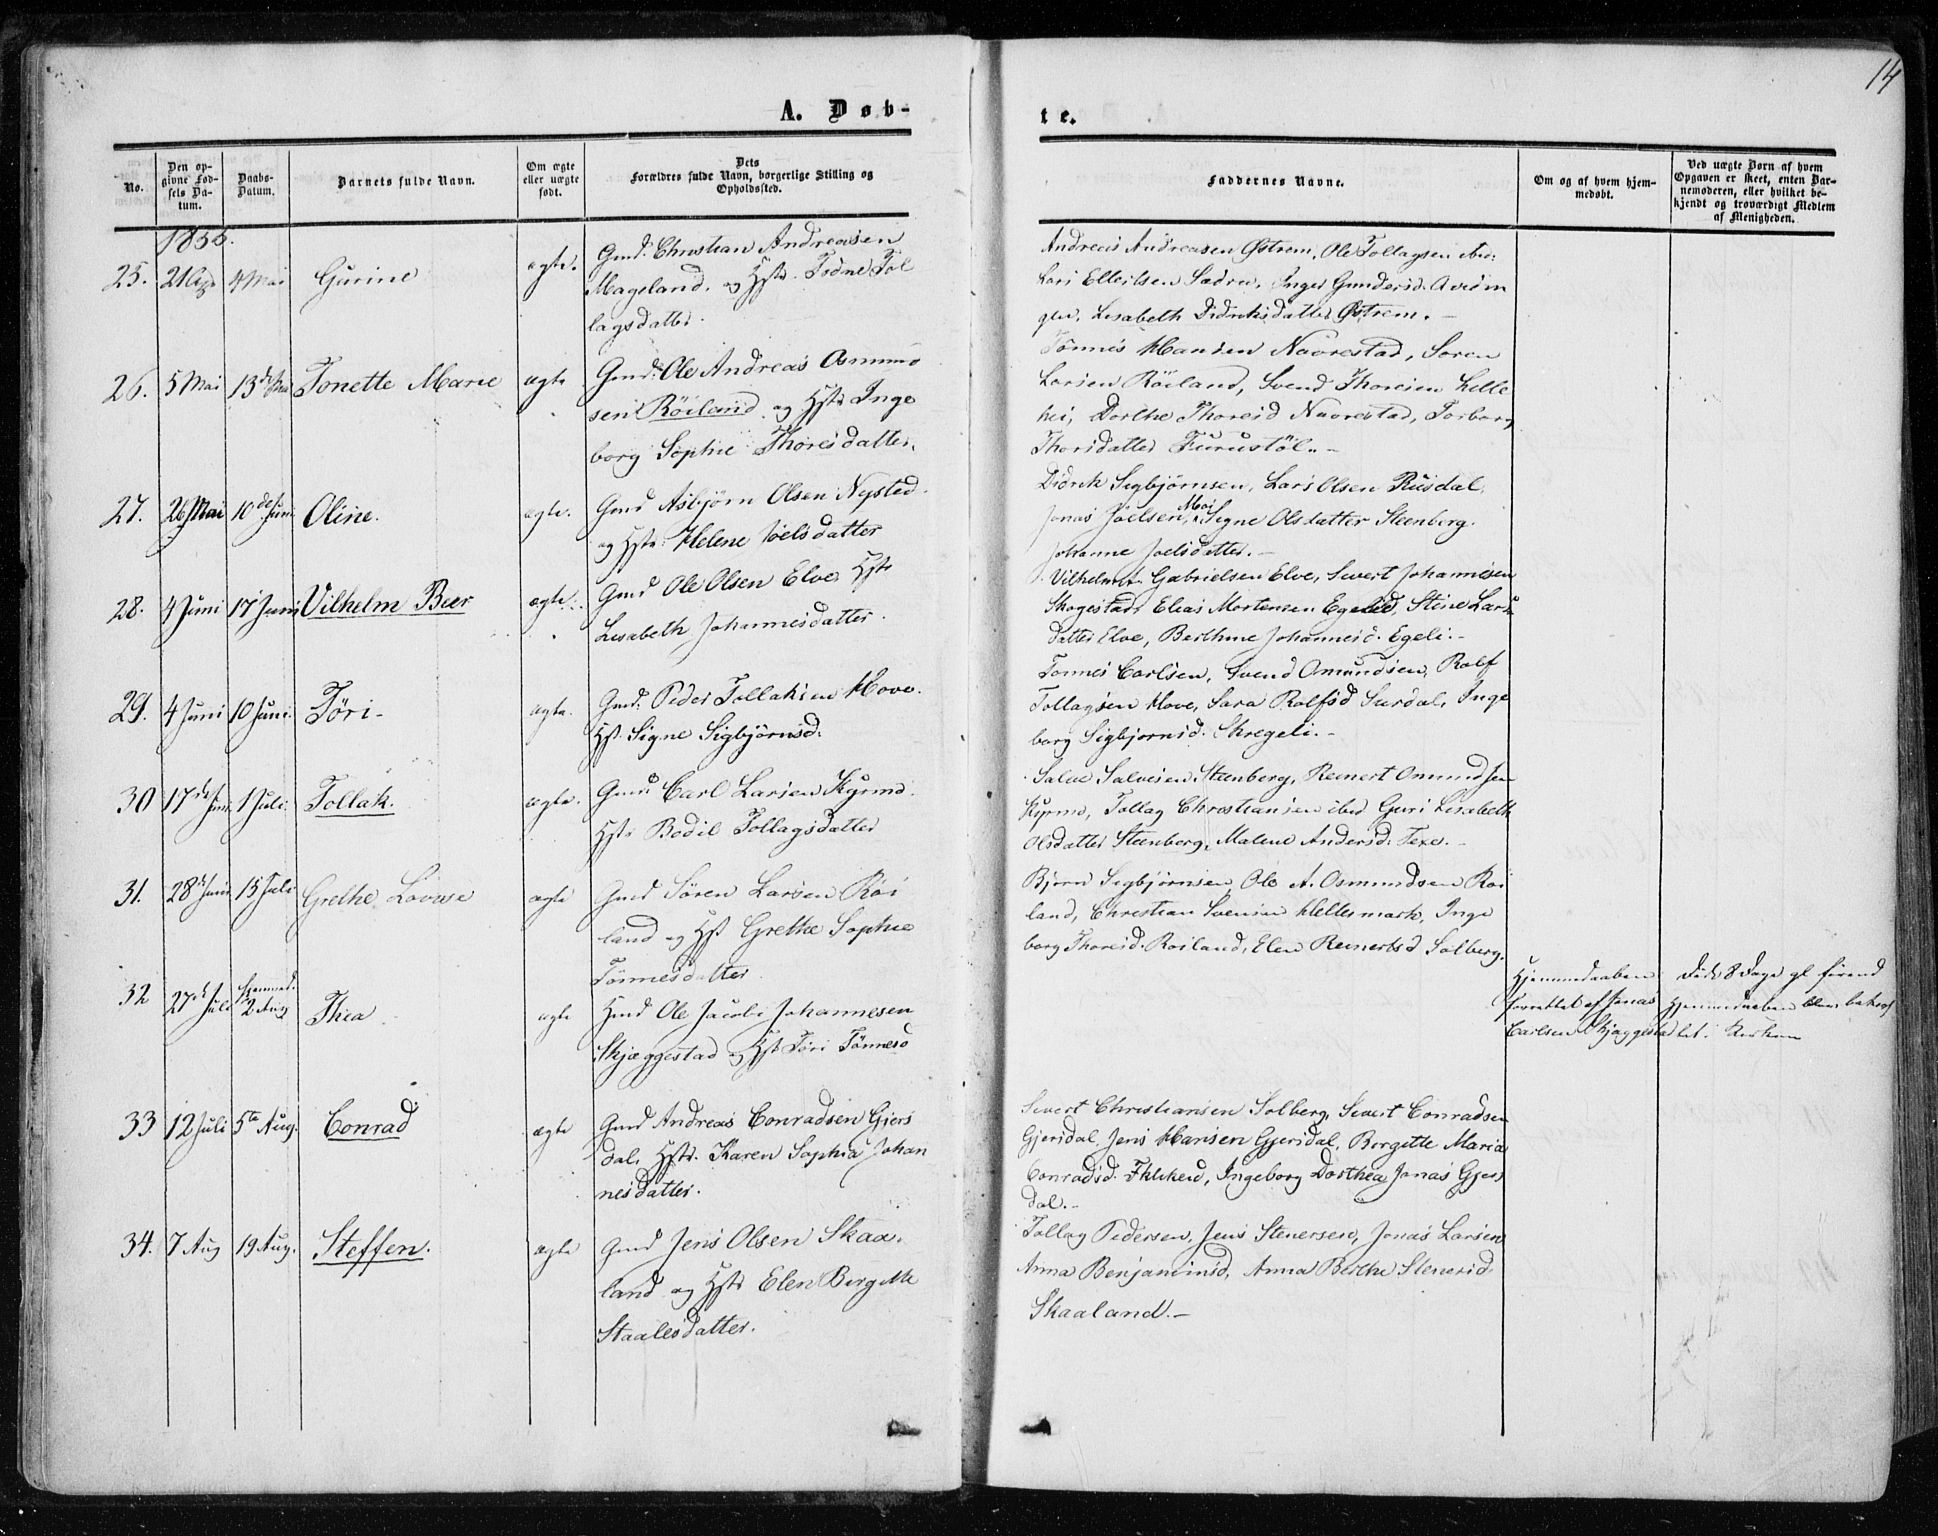 14
A. Døb-
te.
No.
Den opgivne Fødsels Datum.
Daabs-Datum.
Barnets fulde Navn.
Om ægte eller uægte født.
Dets Forældres fulde Navn, borgerlige Stilling og Opholdssted.
Faddernes Navne.
Om og af hvem hjemmedøbt.
Ved uægte Børn af hvem Opgaven er skeet, enten Barnemoderen, eller hvilket bekjendt og troværdigt Medlem af Menigheden.
1855.
25. 4 Mai Gurine ægte. Gmd. Christian Andreasen
Mageland, og Hstr. Tol
lagsdatter.
Andreas Andreasen Østrem, Ole Tollagsen
Inger Gunders
Lisabeth Didriksdatter Østrem.-
26. 5 Mai 13de Mai Tonette Marie ægte Gmd. Ole Andreas Osmund
sen Röiland og Hstr Inge
borg Sophie Thoresdatter.
Tönnes Hansen Naorestad, Soren
Larsen Röiland, Svend Thorsien Helle
hei, Dorthe Thoresd Naorestad, Torborg
Thorsdatter Furustöl.-
27. 26 Mai 10de Juni Oline. ægte. Gmd Asbjörn Olsen Nysted
og Hstr. Helene Joelsdatter
Didrik Sigbjörnsen, Lars Olsen Rusdal,
Jonas Joelsen Moi, Signe Olsdatter Steenberg.
Johanne Joelsdatter.-
28. 4 Juni 17 Juni Vilhelm Beer ægte. Gmd Ole Olsen Elve, Hstr
Lisabeth Johannesdatter.
Vilhelm Gabrielsen Elve, Sivert Johannesen
Skogestad, Elias Mortensen Egeli, Stine Lars
datter Elve, Berthine Johannesd. Egeli.-
29. 4 Juni 10 Juni. Töri- ægte. Gmd. Peder Tollaksen Hove.
Hst. Signe Sigbjörnsd.
Tonnes Carlsen, Svend Omundsen, Rolf
Tollagsen Hove, Sara Rolfsd Surdal, Inge
borg Sigbjornsd. Skregeli.-
30 17de Juni 1 Juli. Tollak. ægte. Gmd Carl Larsen Kyrmo.
Hstr Bodil Tollagsdatter
Salve Salvesen Steenberg, Reinert Omundsen
Kyrmo, Tollag Christiansen ibid Guri Lisabeth
Olsdatter Steenberg, Malene Andersd. Texe.-
31. 28de Juni 15 Juli Grethe Lovise ægte Gmd Sören Larsen Röi
land og Hst Grethe Sophie
Tönnesdatter
Bjørn Sigbjörnsen, Ole A. Osmundsen Roi
land, Christian Svensen Hellesmark, Inge
borg Thoresd. Roiland, Elen Reinertsd Solberg.
32 27de Juli hjemmed. 2 Aug Thea ægte Hmd Ole Jacob Johannesen
Skjæggestad og Hst Töri Tönnesd
Hjemmedaaben
forrettet af Jonas
Carlsen Skjæggestad
Död 8 Dage gl förend
Hjemmedaaben blev bekræf
tet i Kirken
33 12 Juli 5te Aug. Conrad ægte Gmd Andreas Conradsen Gjers
dal, Hstr. Karen Sophia Johan
nesdatter.
Sivert Christiansen Solberg, Sivert Conradsen
Gjersdal, Jens Hansen Gjersdal, Birgitte Maria
Conradsd. Ingeborg Dorthea Jonas Gjers
dal.-
34. 7 Aug 19 Aug. Steffen. ægte Gmd Jens Olsen Skaa
land og Hstr Elen Birgitte
Staalesdatter.
Tollag Pedersen, Jens Stenersen, Jonas Larsen
Anna Benjaminsd, Anna Berthe Stenersd
Skaaland.-